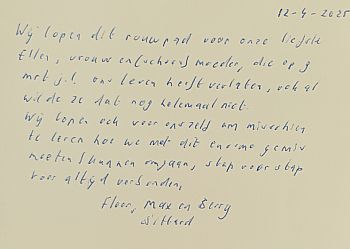 12-4-2025
Wij lopen dit rouwpad voor onze liefste
Ellen, vrouw en (schoon) moeder, die op 9
mrt j.l. ons leven heeft verlaten, ook al
wilde ze dat nog helemaal niet.
Wij lopen ook voor onszelf om misschien
te leren hoe we met dit enorme gemis
moeten/kunnen omgaan, stap voor stap
voor altijd verbonden,
Floor, Max en Berry
Sittard